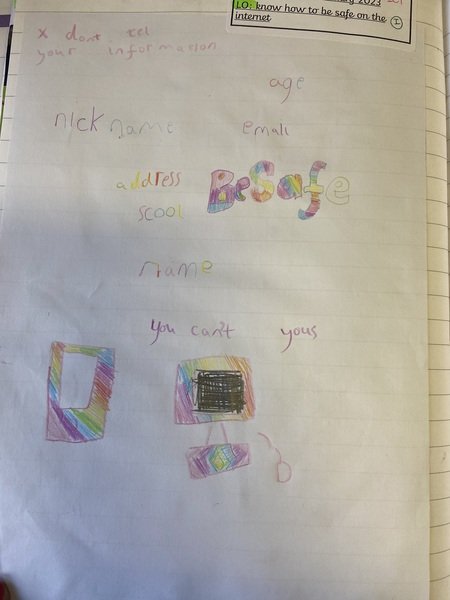 2023
LO: know how to be safe on the
internet
x dont tel
your informason
age
nick name
email
address
BeSafe
scool
name
you can't yous